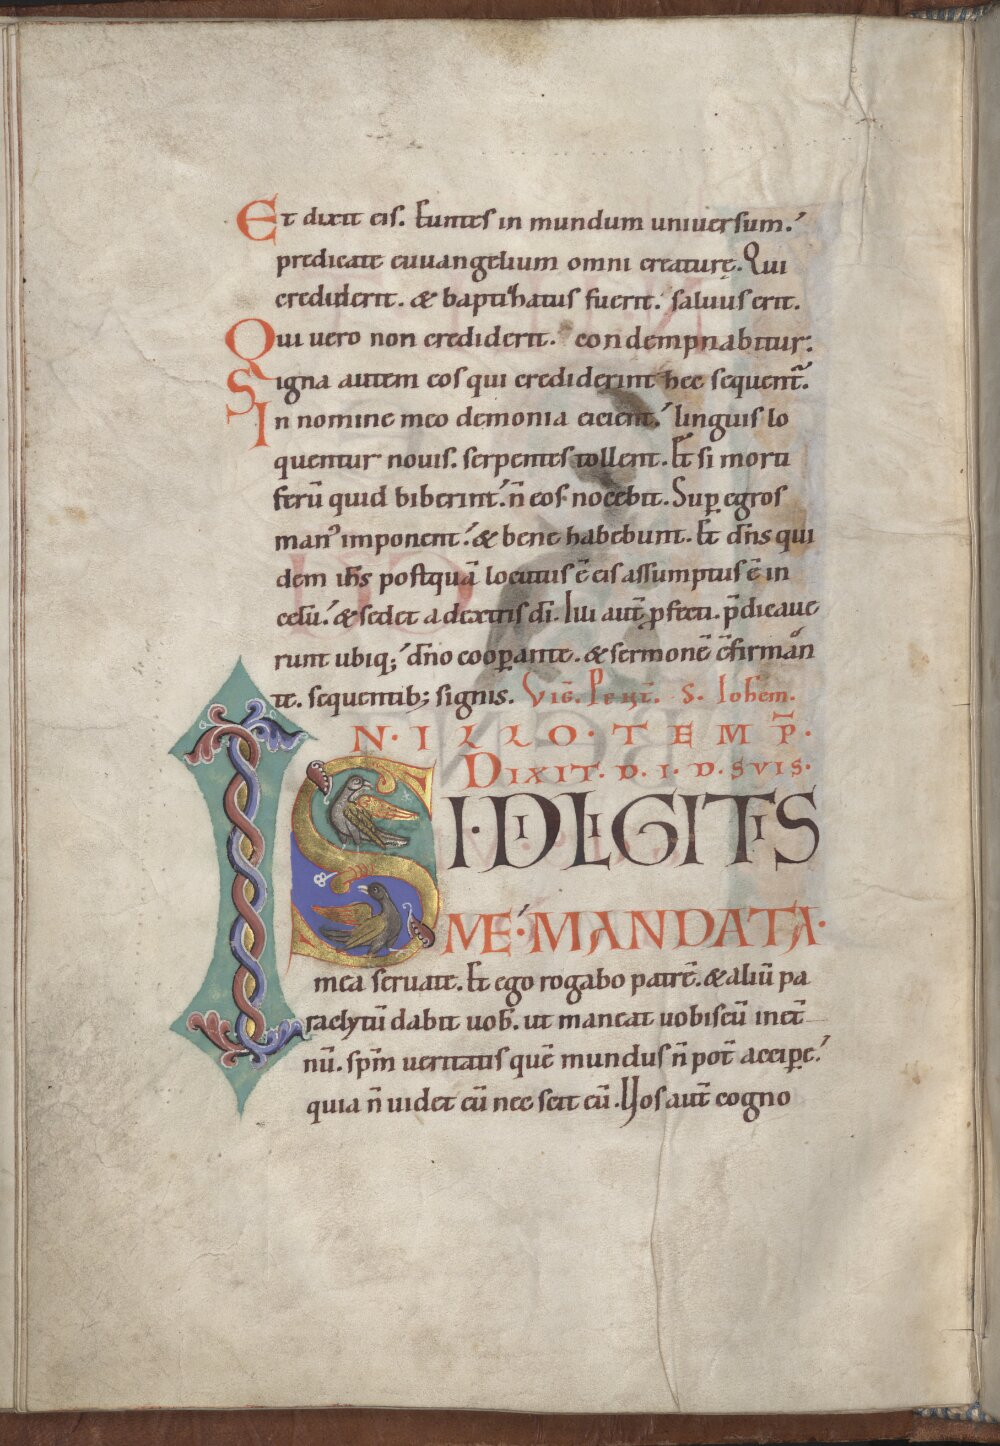 Et dixit eis. Euntes in mundum uniuersum.
predicate euuangelium omni creaturę. Qui
crediderit. & baptizatus fuerit. saluus erit.
Qui uero non crediderit. condempnabitur.
Signa autem eos qui crediderint hec sequent̄.
In nomine meo demonia eicient. linguis lo
quentur nouis. serpentes tollent. Et si morti
ferū quid biberint. n̄ eos nocebit. Sup̱ egros
man᾽ imponent. & bene habebunt. Et dn̄s qui
dem ih̄s postquā locutus ē eis assumptus ē in
celū. & sedet a dextris dī. Illi aut̄ p̱fecti. p̄dicaue
runt ubiq; dn̄o coop̱ante. & sermonē c̄firman
te. sequentib; signis. Vig̅. Pent̅. S. Ioh̅em.
IN·ILLO·TEMP̅·
DIXIT·D·I·D·SVIS·
SI·DILIGITIS
ME·MANDATA·
mea seruate. Et ego rogabo patrē. & aliū pa
raclytū dabit uob̄. ut maneat uobiscū in et̄
nū. sp̄m ueritatis quē mundus n̄ pot̄ accip̱e.
quia n̄ uidet eū nec scit eū. Uos aut̄ cogno